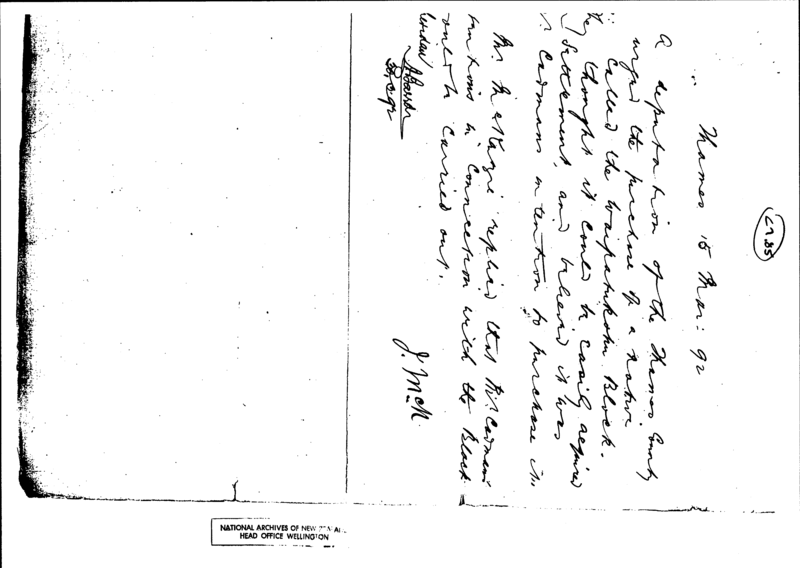 1785
Thames 15 Mar: 92
A deputation of the Thames County
urged the purchase of a native
called the Waipatukahu Block.
they thought it could be easily acquired
Settlement, and believed it was
Cadmans intention to purchase it.
Mr McKenzie replied that Mr Cadmans
intentions in connection with the Block
would be carried out.
J. McK.
NATIONAL ARCHIVES OF NEW ZEALAND
HEAD OFFICE WELLINGTON